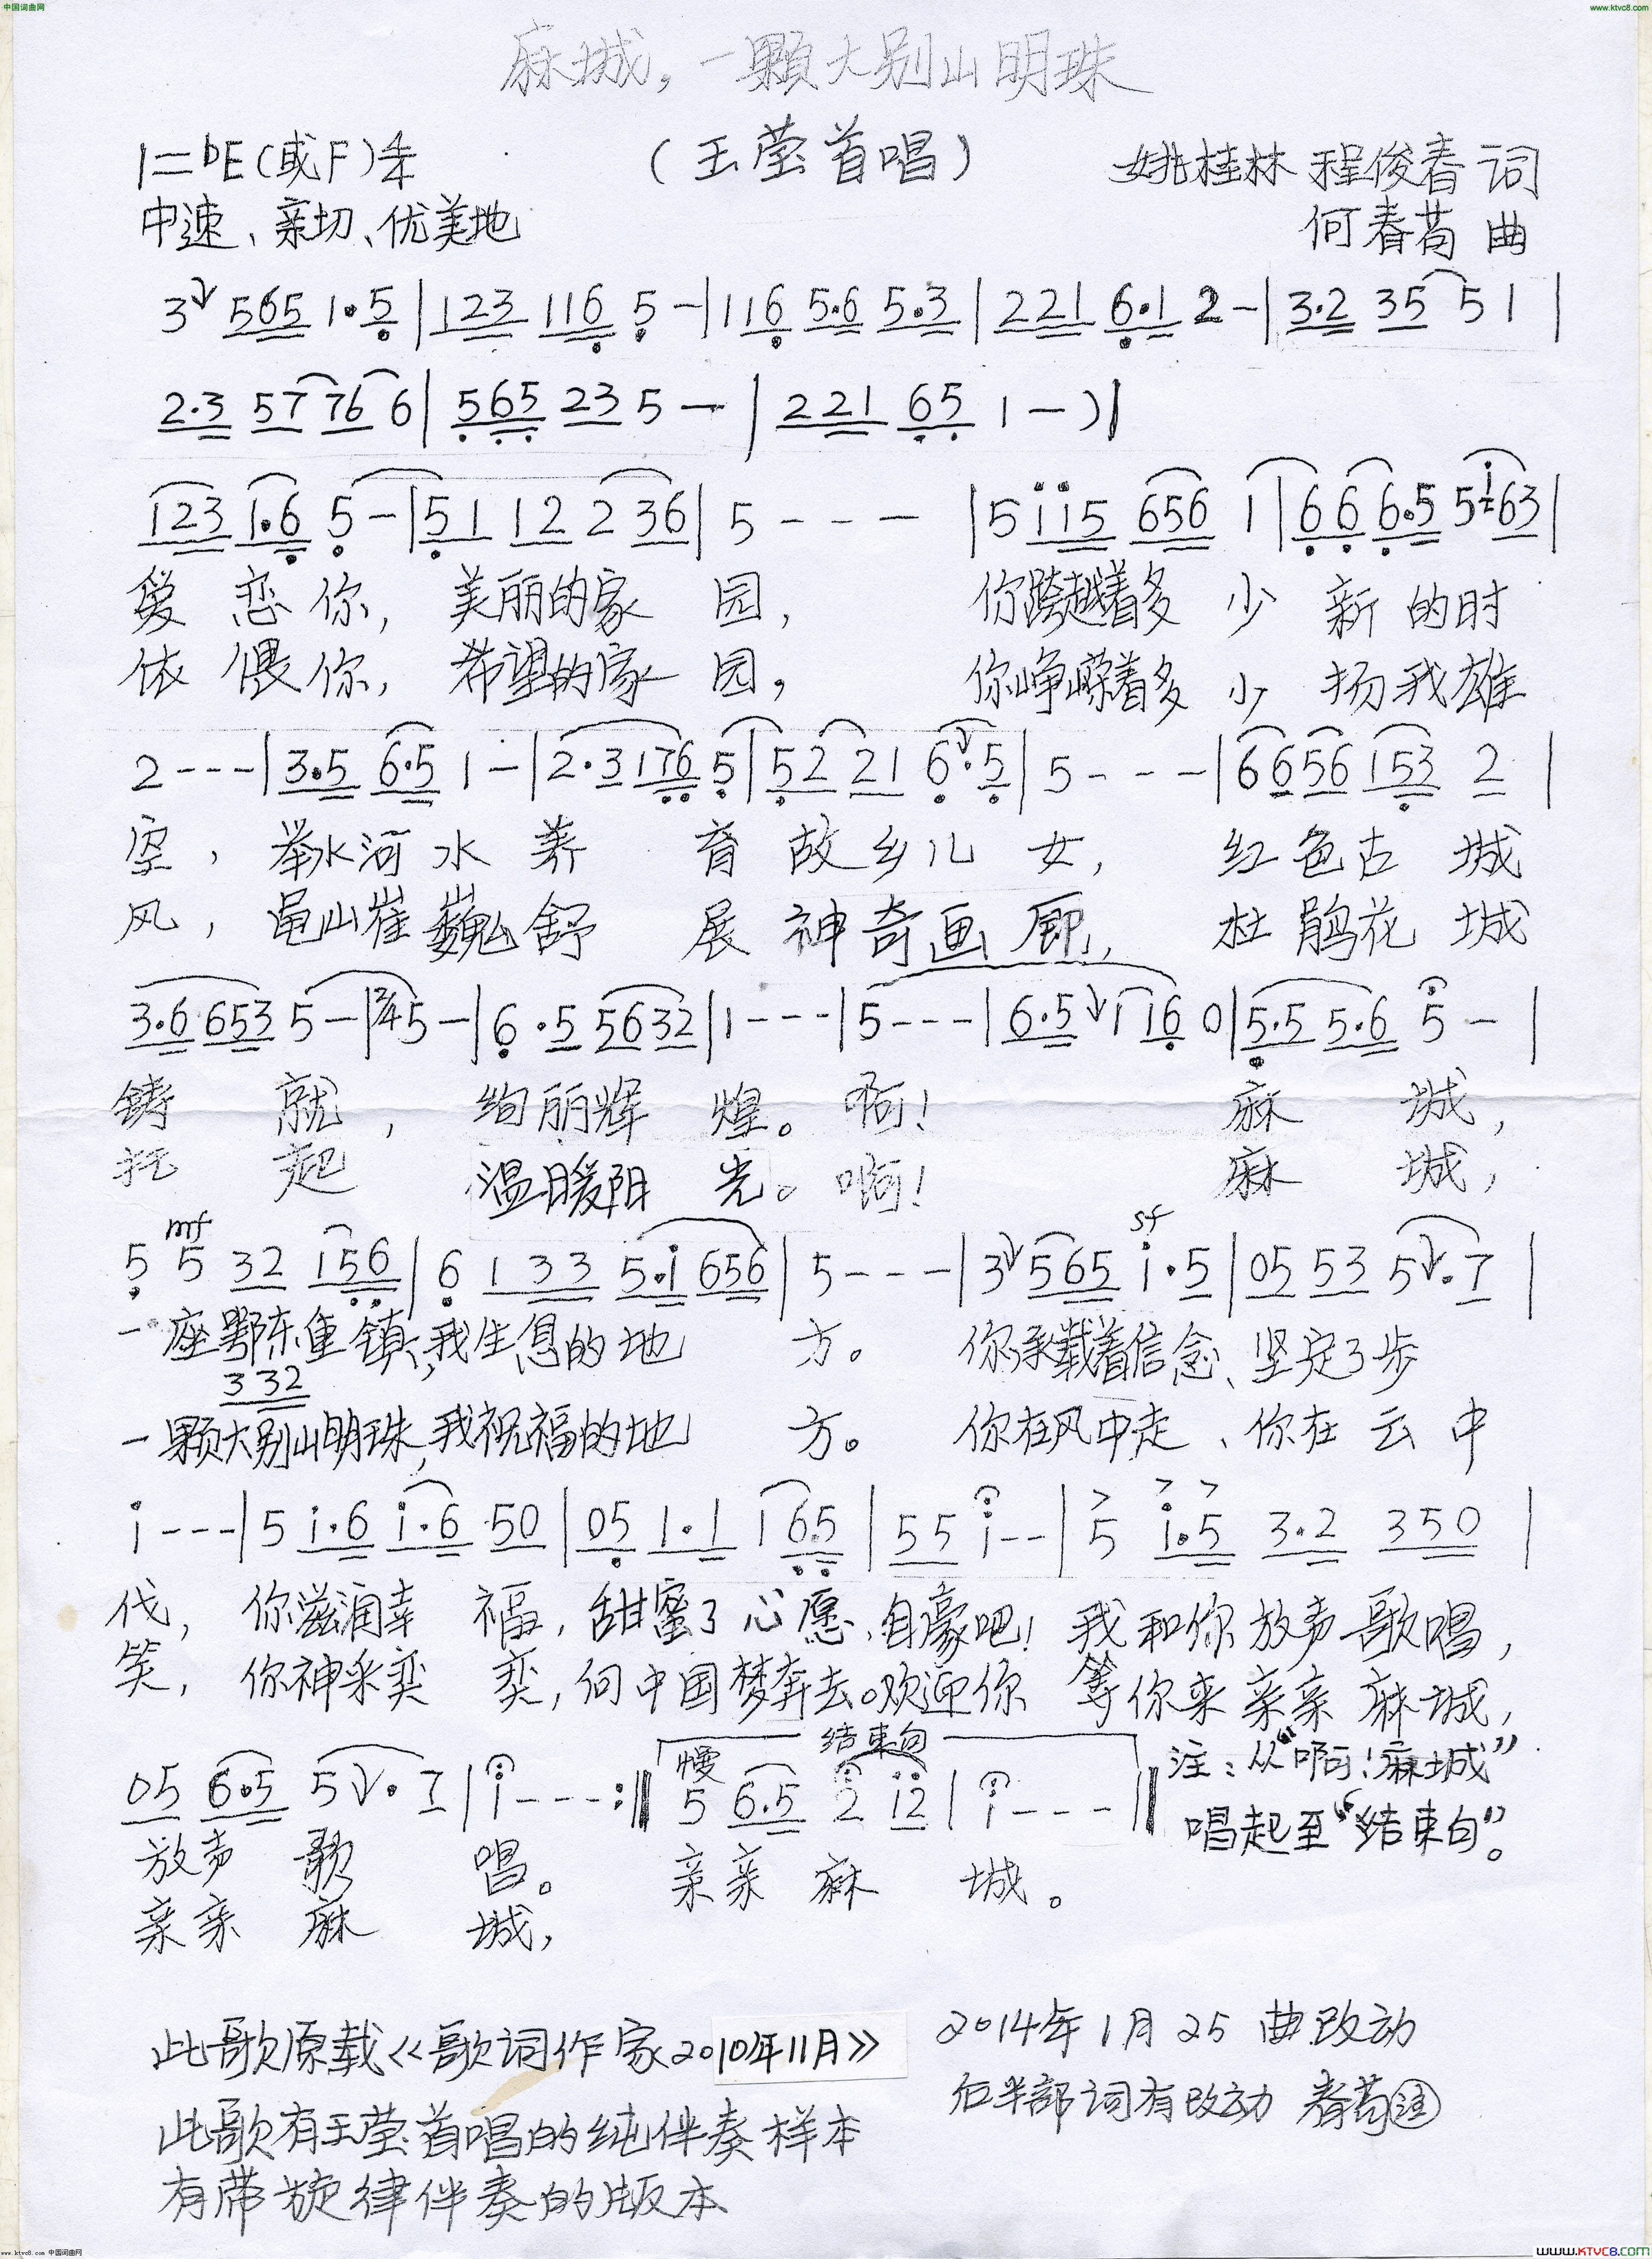 中国词曲网
www.ktvc8.com
麻城，一颗大别山明珠
1=bE(或F) 4/4 （王莹首唱） 姚桂林 程俊春 词
中速、亲切、优美地 何春苟 曲
3 565 1·5 | 123 116 5 - | 116 5·6 5·3 | 221 6·1 2 - | 3·2 35 51 |
2·3 57 76 6 | 565 23 5 - | 221 65 1 - ) |
123 1·6 5 - | 51 12 2 36 | 5 - - - | 5 i i5 656 1 | 66 6·5 5 i 63 |
爱恋你，美丽的家园， 你跨越着多少新的时
依偎你，希望的家园， 你峥嵘着多少扬我雄
2 - - - | 3·5 6·5 1 - | 2·3 176 5 | 52 21 6·5 | 5 - - - | 66 56 153 2 |
空，举水河水养育故乡儿女，红色古城
风，龟山崔巍舒展神奇画廊，杜鹃花城
3·6 653 5 - | 2/4 5 - | 6·5 5632 | 1 - - - | 5 - - - | 6·5 1 16 0 | 5·5 5·6 5 - |
铸就，绚丽辉煌。啊！麻城，
托起 温暖阳光。啊！麻城，
mf sf
5 5 32 156 | 6 1 33 5·i 656 | 5 - - - | 3 565 i·5 | 05 53 5·7 |
一座鄂东重镇，我生息的地方。你承载着信念、坚定了步
3 32
一颗大别山明珠，我祝福的地方。你在风中走、你在云中
i - - - | 5 i·6 i·6 50 | 05 1·1 1 65 | 55 i - - | 5 i·5 3·2 350 |
伐，你滋润幸福，甜蜜了心愿、自豪吧！我和你放声歌唱，
笑，你神采奕奕，向中国梦奔去。欢迎你 等你来亲亲麻城，
结束句
慢
05 6·5 5·7 | i - - - :‖ 5 6·5 2 i2 | i - - - ‖
注：从“啊！麻城”
唱起至“结束句”。
放声歌唱。 亲亲麻城。
亲亲麻城，
此歌原载《歌词作家2010年11月》
2014年1月25 曲改动
后半部词有改动 春苟注
此歌有王莹首唱的纯伴奏样本
有带旋律伴奏的版本
www.ktvc8.com 中国词曲网
WWW.KTVC8.COM